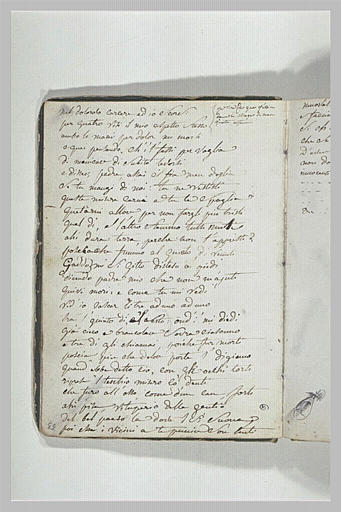 nel doloroso carcere ed io scorsi
per quattro visi il mio aspetto stesso
ambo le mani per dolor mi morsi
e quei pensando, ch'i 'l fessi per voglia
di manicar di subito levorsi
e disser, padre assai ci fia men doglia
se tu mangi di noi: tu ne vestisti
queste misere carni e tu le spoglia
Quetami allor per non fargli più tristi
quel dì, e l'altro stemmo tutti muti
ahi dura terra perchè non t'apristi?
posciachè fummo al quarto dì venuti
Gaddo mi si gittò disteso a piedi
dicendo padre mio che non m'ajuti
Quivi morì e come tu mi vedi
vid'io cascar li tre ad uno ad uno
tra 'l quinto dì e 'l sesto, ond'i' mi diedi
già cieco a brancolar sovra ciascuno
e tre dì gli chiamai, poichè fur morti
poscia più che dolor potè 'l digiuno
Quand'ebbe detto ciò, con gli occhi torti
riprese 'l teschio misero co' denti
che furo all'osso come d'un can forti
ahi Pisa vituperio delle genti
del bel paese là dove 'l sì suona
poi che i vicini a te punir son lenti